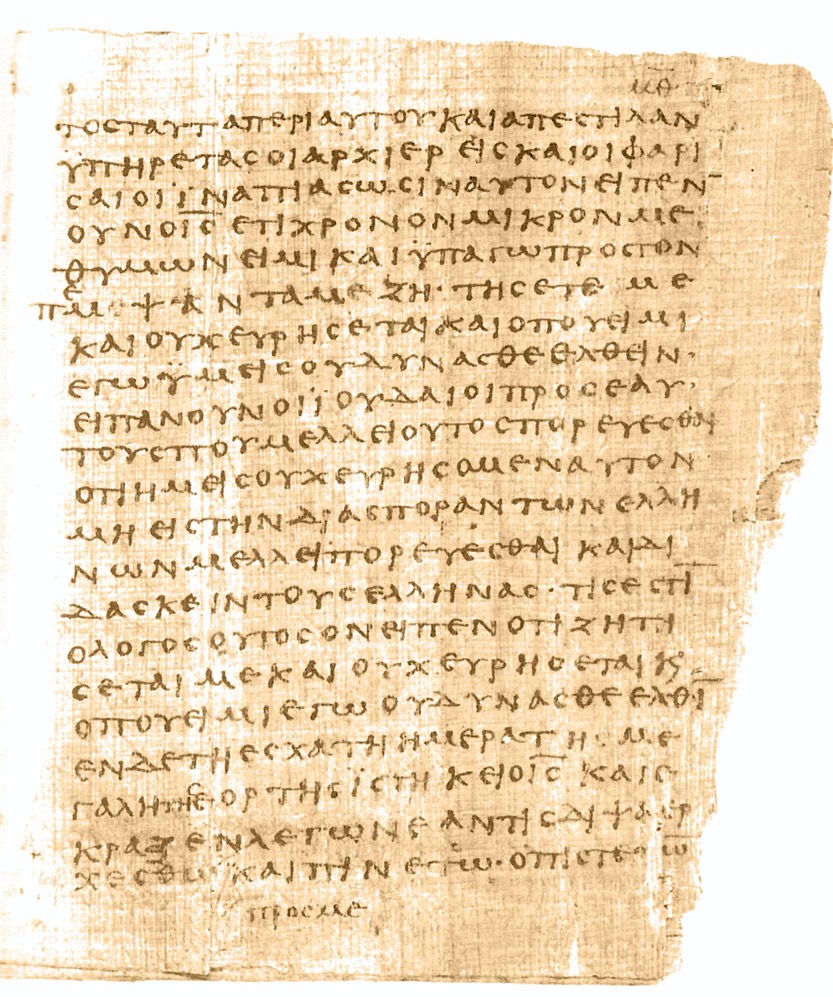 μθ
τοσταυταπεριαυτουκαιαπεστιλαν
ϋπηρετασοιαρχιερεισκαιοιφαρι
σαιοιϊναπιασωσιναυτονειπεν
ουνοι̅σ̅ετιχρονονμικρονμε
θυμωνειμικαιϋπαγωπροστον
πεμψανταμεζητησετεμε
καιουχευρησεταικαιοπουειμι
εγωϋμεισουδυνασθεελθειν·
ειπανουνοιϊουδαιοιπροσεαυ
τουσπουμελλειουτοσπορευεσθαι
οτιημεισουχευρησομεναυτον
μηειστηνδιασπορανττωνελλη
νωνμελλειπορευεσθαικαιδι
δασκειντουσελληνασ·τισεστι̅
ολογοσουτοσονειπενοτιζητι
σεταιμεκαιουχευρησεται
οπουειμιεγωουδυνασθεελθι̅
ενδετηεσχατηημερατημε
γαλητησεορτησϊστηκειοι̅σ̅καιε
κραζενλεγωνεαντισδιψαερ
χεσθωκαιπινετω·οπιστευω̅
προσμε